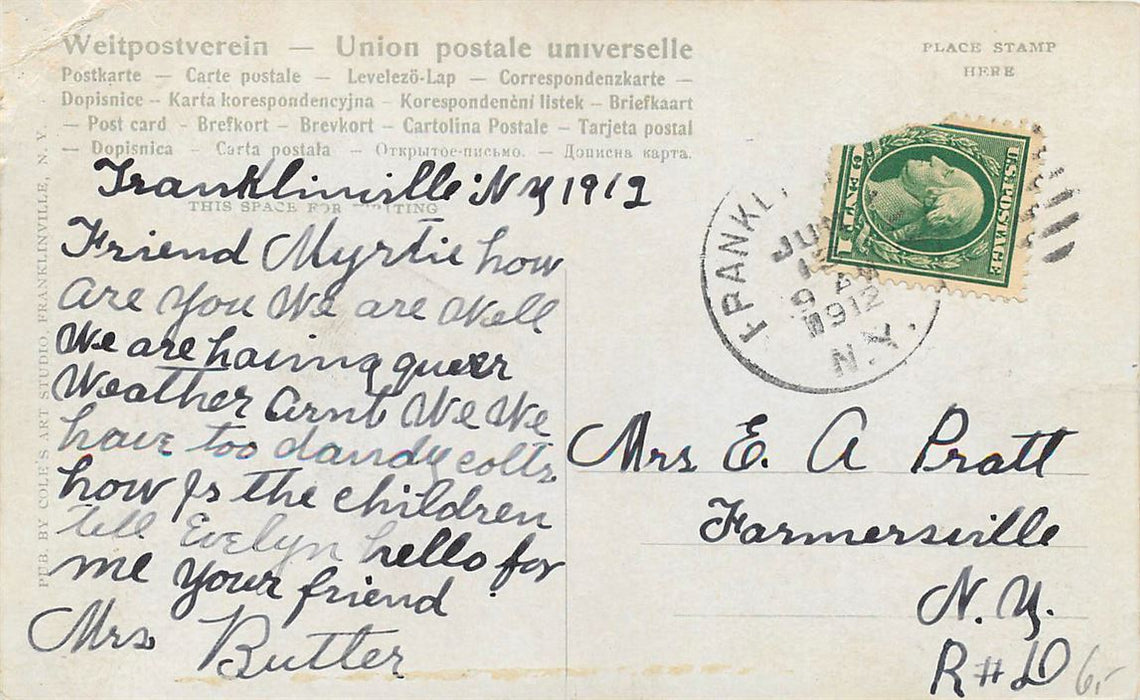 Weltpostverein — Union postale universelle
Postkarte — Carte postale — Levelező-Lap — Correspondenzkarte —
Dopisnice – Karta korespondencyjna – Korespondenční listek – Briefkaart
— Post card - Brefkort - Brevkort - Cartolina Postale – Tarjeta postal
— Dopisnica - Carta postala — Открытое-письмо. — Дописна карта.
PLACE STAMP
HERE
THIS SPACE FOR TING
PUB. BY COLE'S ART STUDIO, FRANKLINVILLE, N. Y.
Franklinville N Y 1912
Friend Myrtie how
are you We are Well
We are having queer
Weather Arnt We We
have too dandy colts
how Is the children
tell Evelyn hello for
me your friend
Mrs Butler
U.S. POSTAGE
FRANKL
JUN
9 AM
1912
N.Y.
Mrs E. A Pratt
Farmersville
N. Y.
R # D
6,-